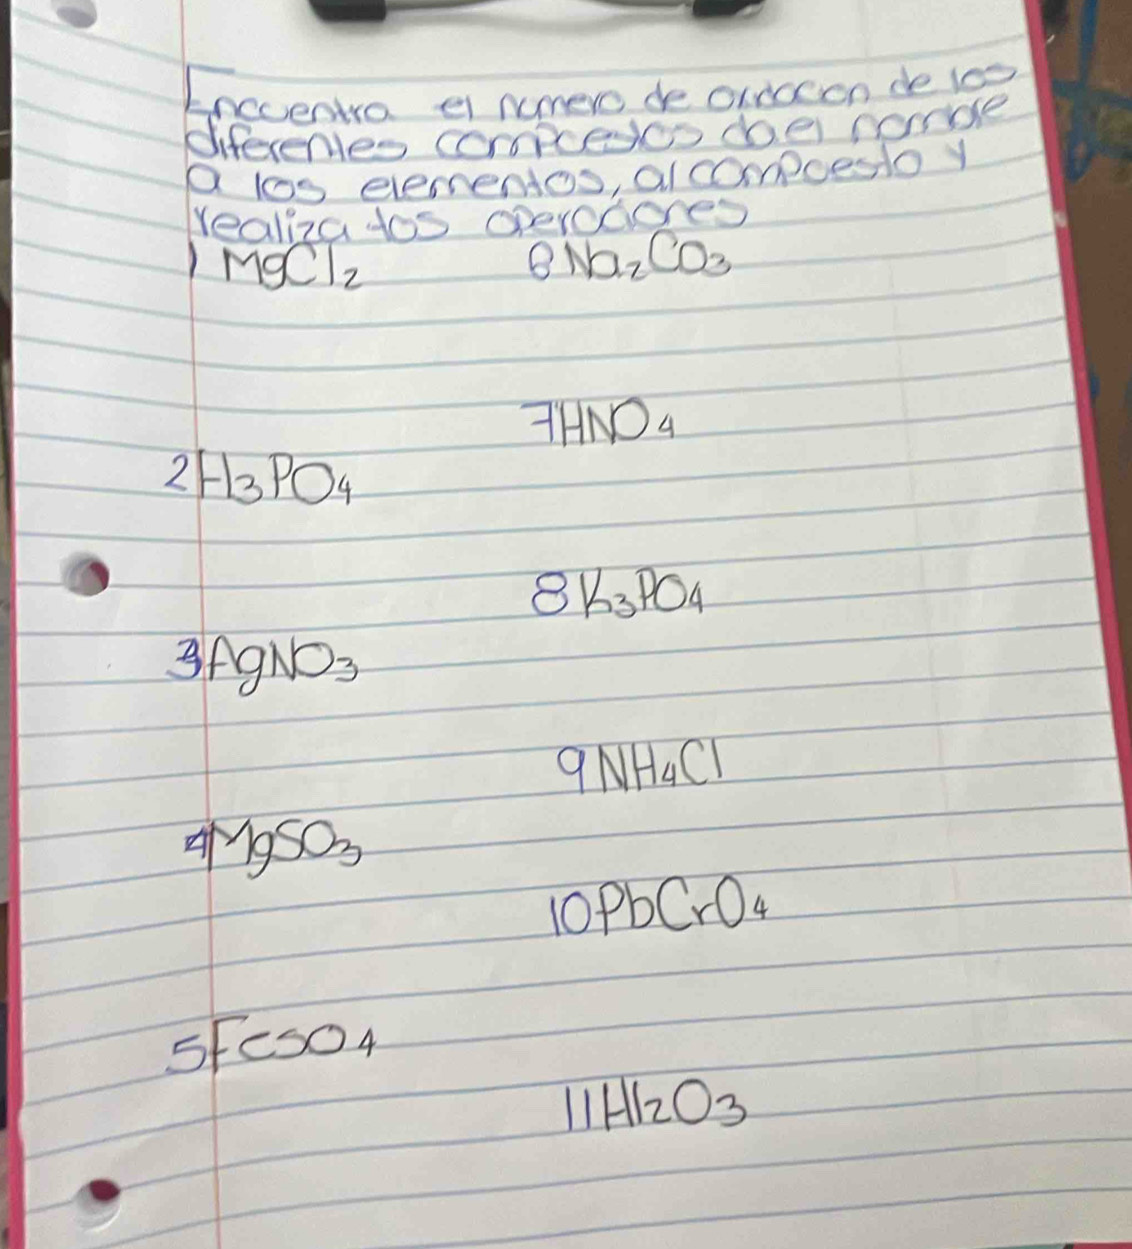 Encuentra el numero de oxidacion de los
diferentes compuestos da el nombre
a los elementos, al compuesto y
realiza los operaciones
1 MgCl₂
6 Na₂CO₃
7 HNO₄
2 H₃PO₄
8 K₃PO₄
3 AgNO₃
9 NH₄Cl
4 MgSO₃
10 PbCrO₄
5 FeSO₄
11 Al₂O₃